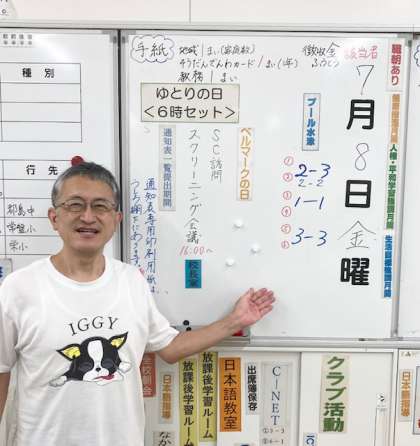 種別
行先
都島中
常盤小
栄小
手紙
地域1まい(家庭数)
そうだんでんわカード1まい(1年)
教務1まい
徴収金
ふうとう
該当者
臓朝あり
7月8日金曜
人権・平和学習強調月間
生活目標強調月間
プール水泳
① 2-3
2-2
1-1
3-3
ゆとりの日
<6時セット>
ベルマークの日
SC訪問
スクリーニング会議
16:00〜
校長室
通知表一覧提出期間
通知表専用印刷用紙は
IGGY
放課後学習ルーム
放課後学習ルーム
日本語教室
出席簿保存
C-NET
クラブ活動
日本語指導